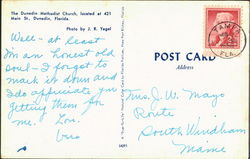 The Dunedin Methodist Church, located at 421
Main St., Dunedin, Florida.
Photo by J. R. Vogel
Well - at least
I'm an honest old
soul - I forgot to
mark it down and
I do appreciate you
getting them for
me.
POST CARD
Address
TAMPA
FLA.
Mrs. J. W. Mayo
Route
South Windham
Maine